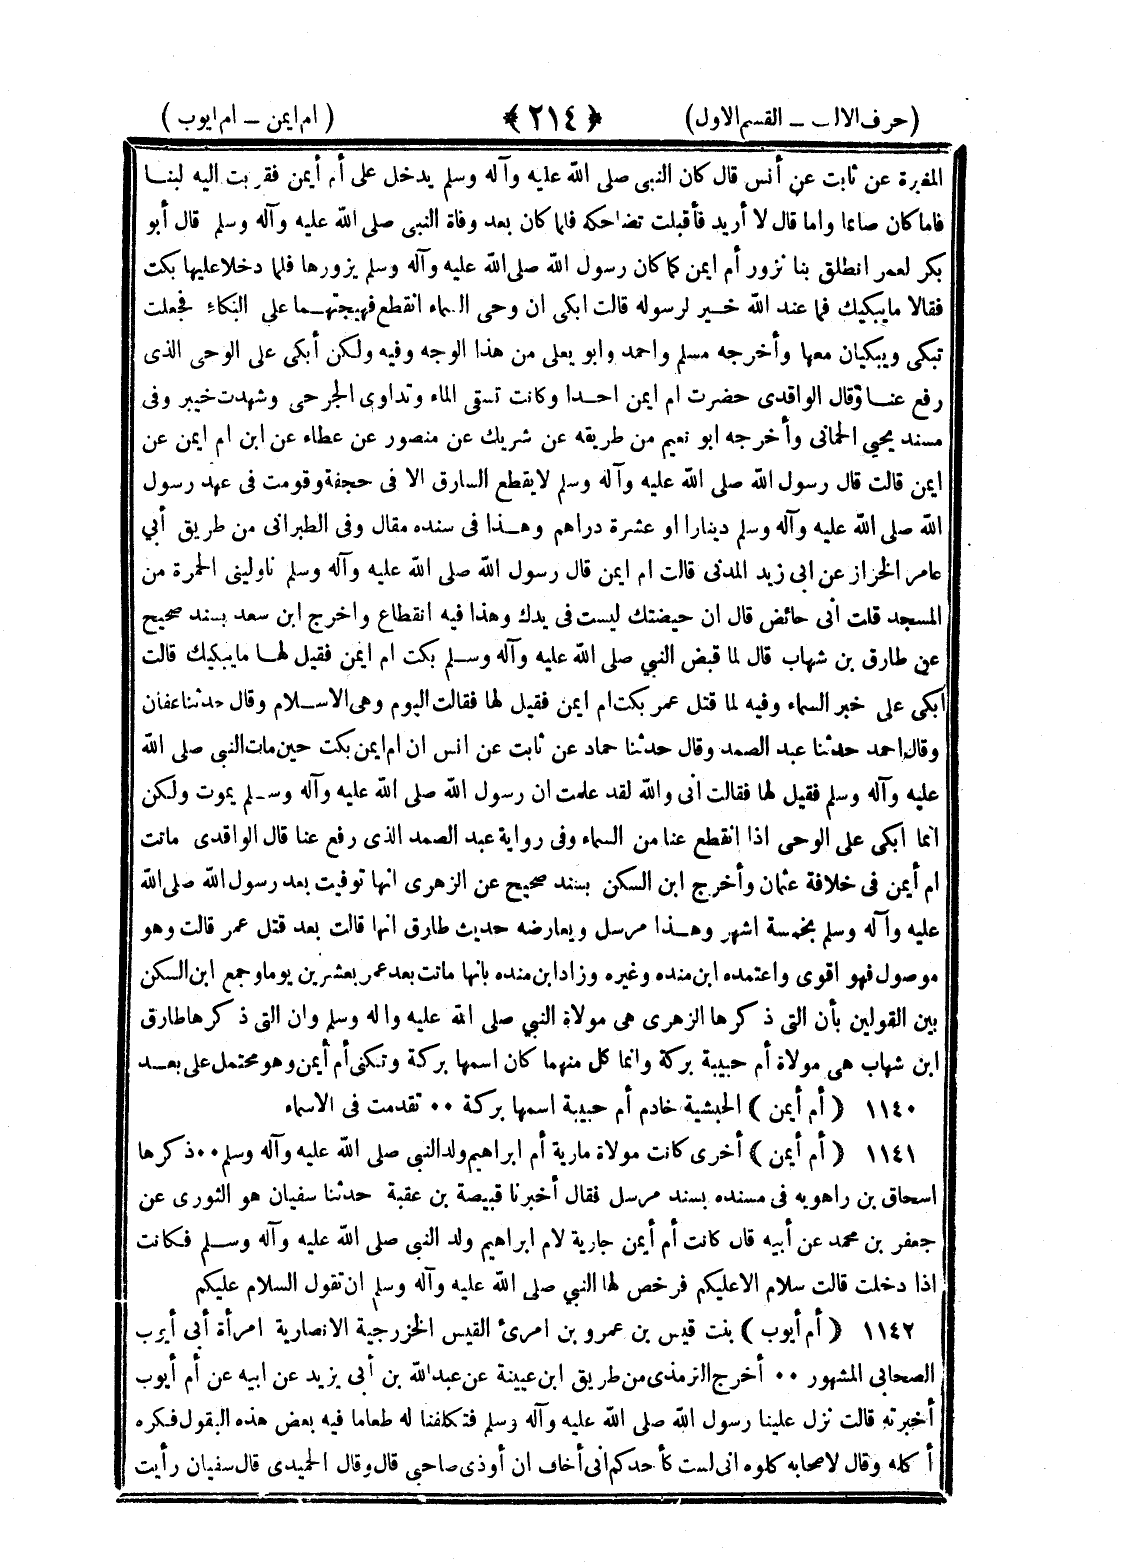 (حرف الالف ــ القسم الاول) ﴿ ٢١٤ ﴾ ( ام ايمن ــ ام ايوب )
المغيرة عن ثابت عن أنس قال كان النبى صلى الله عليه وآله وسلم يدخل على أم أيمن فقربت اليه لبنا
فاما كان صائما واما قال لا أريد فأقبلت تضاحكه فلما كان بعد وفاة النبى صلى الله عليه وآله وسلم قال أبو
بكر لعمر انطلق بنا نزور أم ايمن كما كان رسول الله صلى الله عليه وآله وسلم يزورها فلما دخلا عليها بكت
فقالا مايبكيك فما عند الله خير لرسوله قالت ابكى ان وحى السماء انقطع فهيجتهما على البكاء فجعلت
تبكى ويبكيان معها وأخرجه مسلم واحمد وابو يعلى من هذا الوجه وفيه ولكن أبكى على الوحى الذى
رفع عنا وقال الواقدى حضرت ام ايمن احدا وكانت تسقى الماء وتداوى الجرحى وشهدت خيبر وفى
مسند يحيى الحمانى وأخرجه ابو نعيم من طريقه عن شريك عن منصور عن عطاء عن ابن ام ايمن عن
ايمن قالت قال رسول الله صلى الله عليه وآله وسلم لايقطع السارق الا فى حجفة وقومت فى عهد رسول
الله صلى الله عليه وآله وسلم دينارا او عشرة دراهم وهذا فى سنده مقال وفى الطبرانى من طريق أبي
عامر الخزاز عن ابى زيد المدنى قالت ام ايمن قال رسول الله صلى الله عليه وآله وسلم ناولينى الخمرة من
المسجد قلت أنى حائض قال ان حيضتك ليست فى يدك وهذا فيه انقطاع واخرج ابن سعد بسند صحيح
عن طارق بن شهاب قال لما قبض النبي صلى الله عليه وآله وسلم بكت ام ايمن فقيل لها مايبكيك قالت
ابكى على خبر السماء وفيه لما قتل عمر بكت ام ايمن فقيل لها فقالت اليوم وهى الاسلام وقال حدثنا عفان
وقال احمد حدثنا عبد الصمد وقال حدثنا حماد عن ثابت عن انس ان ام ايمن بكت حين مات النبى صلى الله
عليه وآله وسلم فقيل لها فقالت أنى والله لقد علمت ان رسول الله صلى الله عليه وآله وسلم يموت ولكن
انما ابكى على الوحى اذا انقطع عنا من السماء وفى رواية عبد الصمد الذى رفع عنا قال الواقدى ماتت
ام أيمن فى خلافة عثمان وأخرج ابن السكن بسند صحيح عن الزهرى انها توفيت بعد رسول الله صلى الله
عليه وآله وسلم بخمسة اشهر وهذا مرسل ويعارضه حديث طارق انها قالت بعد قتل عمر قالت وهو
موصول فهو اقوى واعتمده ابن منده وغيره وزاد ابن منده بانها ماتت بعد عمر بعشرين يوما وجمع ابن السكن
بين القولين بأن التى ذكرها الزهرى هى مولاة النبي صلى الله عليه واله وسلم وان التى ذكرها طارق
ابن شهاب هى مولاة أم حبيبة بركة وانما كل منهما كان اسمها بركة وتكنى أم أيمن وهو محتمل على بعد
١١٤٠ ( أم أيمن ) الحبشية خادم أم حبيبة اسمها بركة ٠٠ تقدمت فى الاسماء
١١٤١ ( أم أيمن ) أخرى كانت مولاة مارية أم ابراهيم ولد النبى صلى الله عليه وآله وسلم ٠٠ ذكرها
اسحاق بن راهويه فى مسنده بسند مرسل فقال أخبرنا قبيصة بن عقبة حدثنا سفيان هو الثورى عن
جعفر بن محمد عن أبيه قال كانت أم أيمن جارية لام ابراهيم ولد النبى صلى الله عليه وآله وسلم فكانت
اذا دخلت قالت سلام الاعليكم فرخص لها النبي صلى الله عليه وآله وسلم ان تقول السلام عليكم
١١٤٢ ( أم أيوب ) بنت قيس بن عمرو بن امرئ القيس الخزرجية الانصارية امرأة أبي أيوب
الصحابي المشهور ٠٠ أخرج الترمذى من طريق ابن عيينة عن عبد الله بن أبى يزيد عن ابيه عن أم أيوب
أخبرته قالت نزل علينا رسول الله صلى الله عليه وآله وسلم فتكلفنا له طعاما فيه بعض هذه البقول فكره
أكله وقال لاصحابه كلوه انى لست كأحدكم انى أخاف ان أوذى صاحبي قال وقال الحميدى قال سفيان رأيت